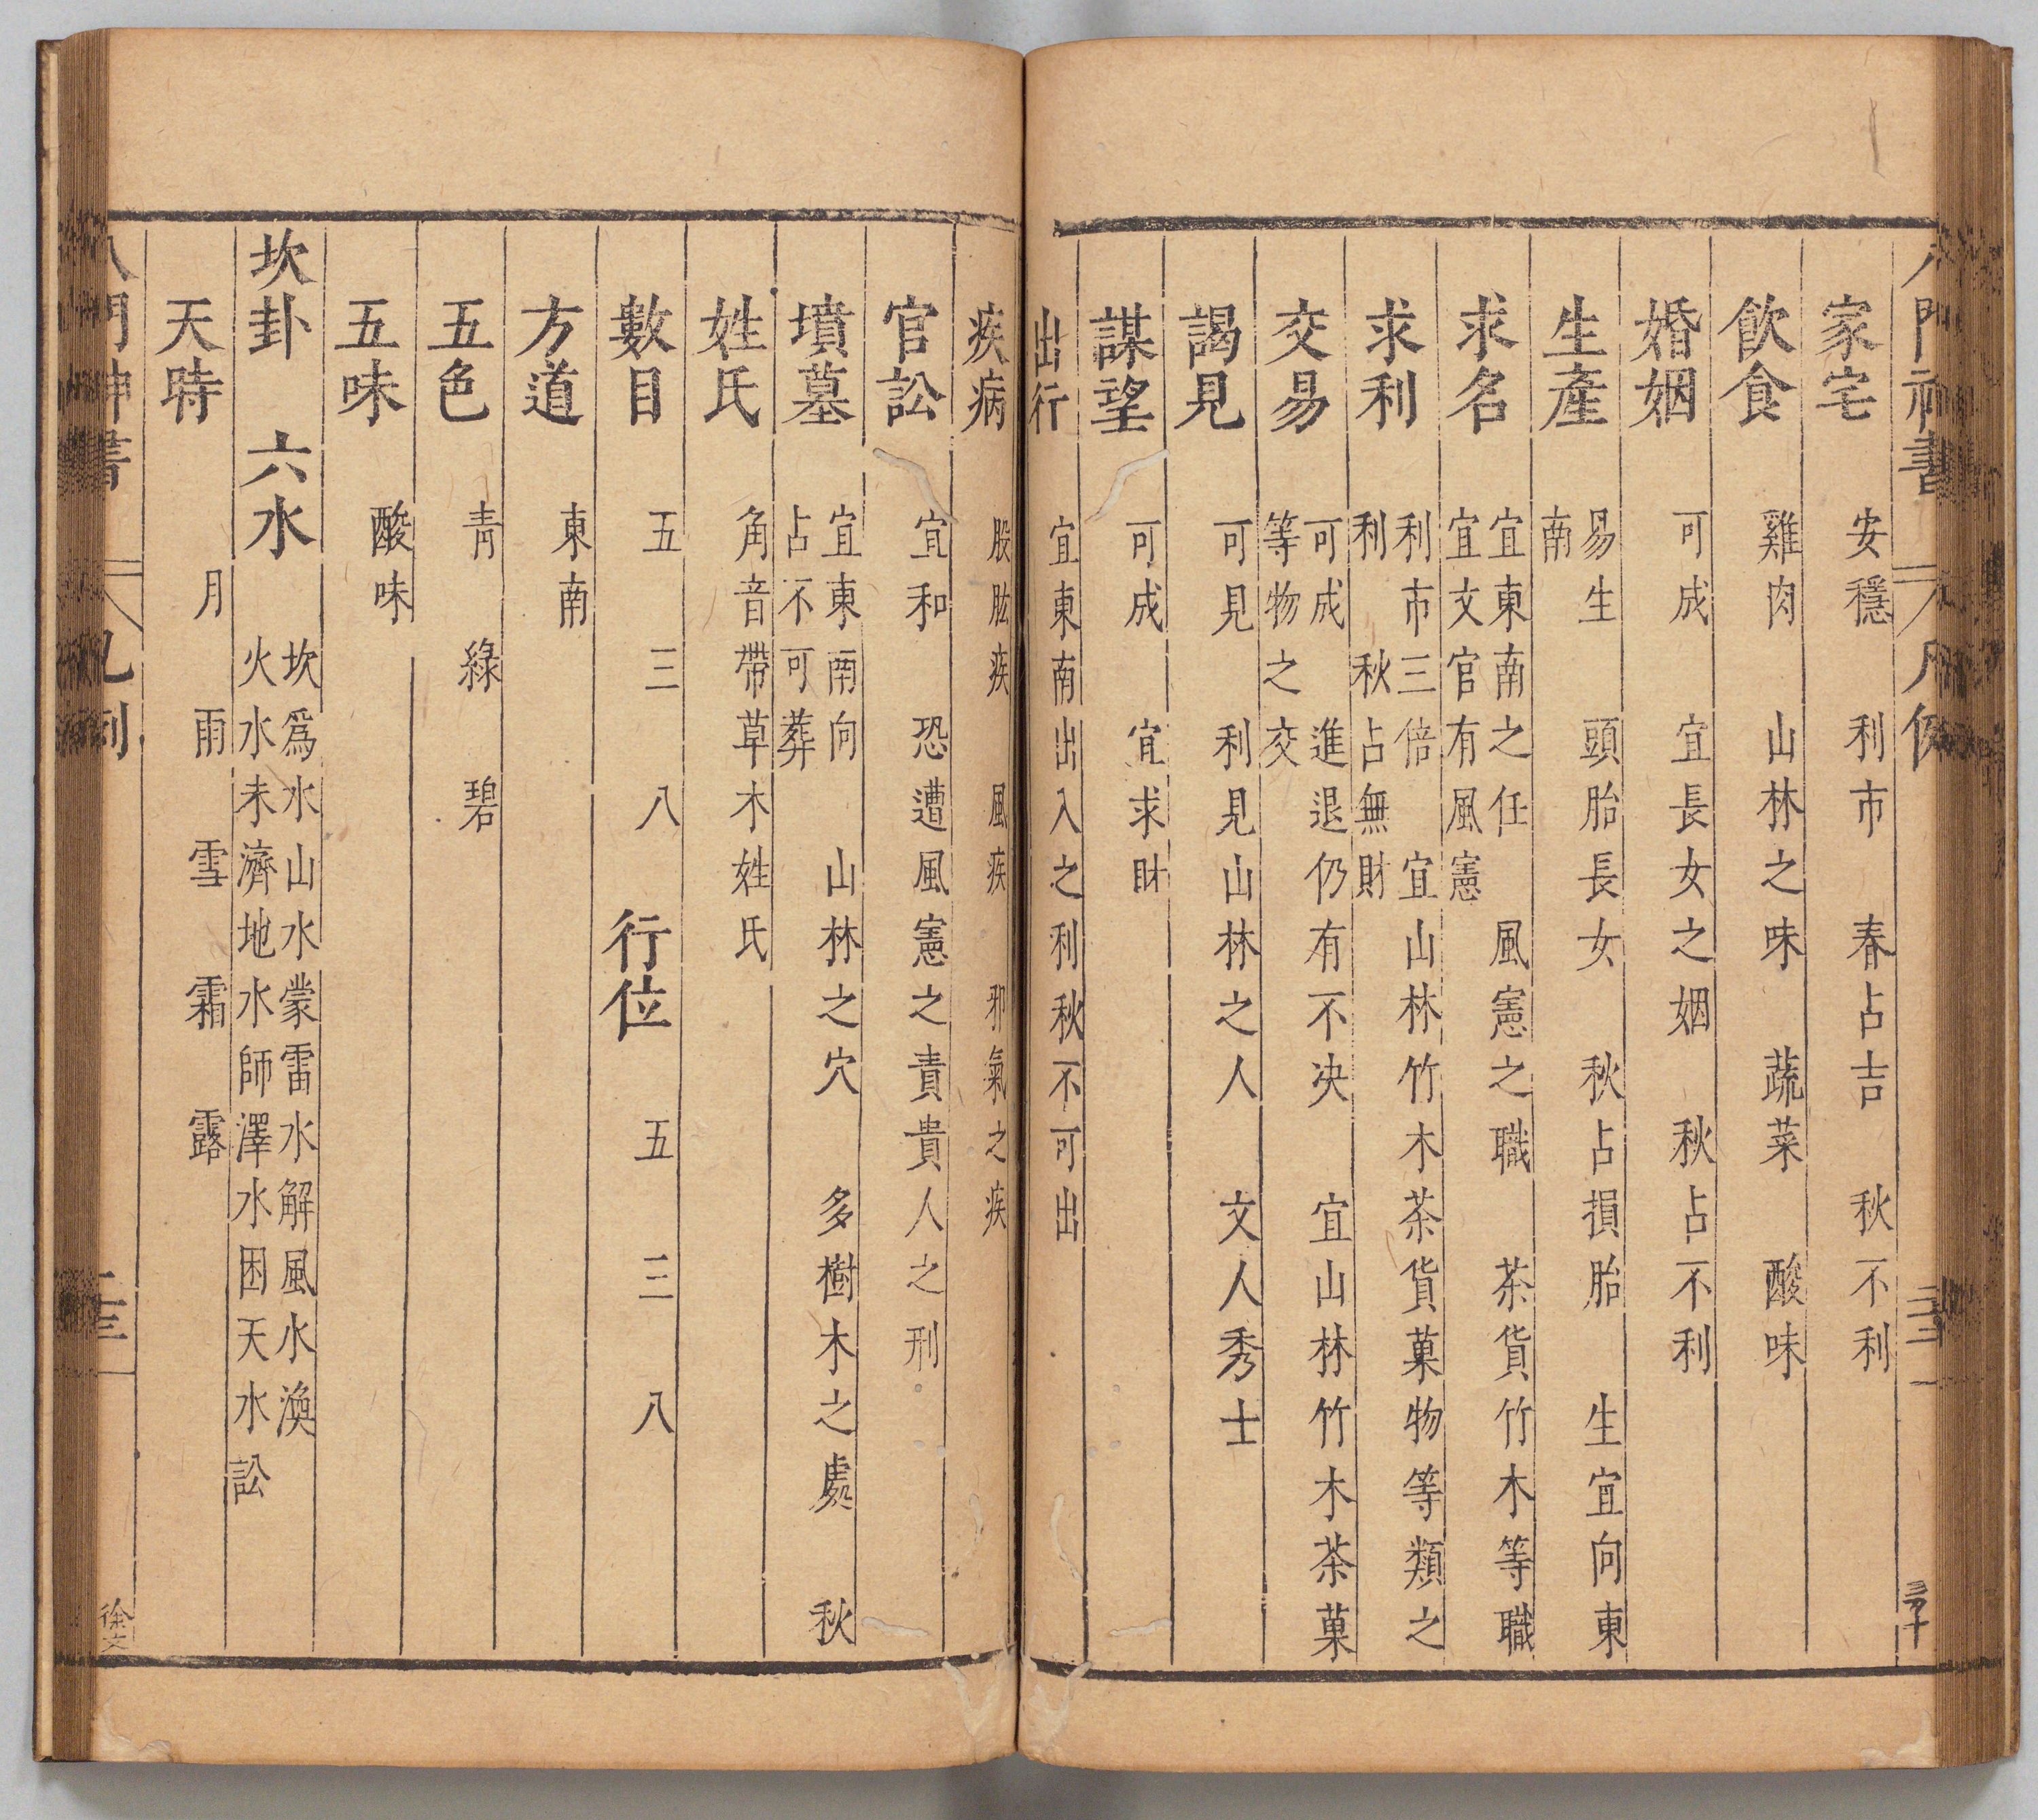 八門神書 凡例
家宅 安穩 利市 春占吉 秋不利
飲食 雞肉 山林之味 蔬菜 酸味
婚姻 可成 宜長女之姻 秋占不利
生產 易生 頭胎長女 秋占損胎 生宜向東
南
求名 宜東南之任 風憲之職 茶貨竹木等職
宜文官有風憲
求利 利市三倍 宜山林竹木茶貨菓物等類之
利 秋占無財
交易 可成 進退仍有不决 宜山林竹木茶菓
等物之交
謁見 可見 利見山林之人 文人秀士
謀望 可成 宜求財
出行 宜東南出入之利秋不可出
疾病 股肱疾 風疾 邪氣之疾
官訟 宜和 恐遭風憲之責貴人之刑
墳墓 宜東南向 山林之穴 多樹木之處 秋
占不可葬
姓氏 角音帶草木姓氏
數目 五 三 八 行位 五 三 八
方道 東南
五色 青 綠 碧
五味 酸味
坎卦 六水 坎爲水山水蒙雷水解風水渙
火水未濟地水師澤水困天水訟
天時 月 雨 雪 霜 露
八門神書 凡例
徐文